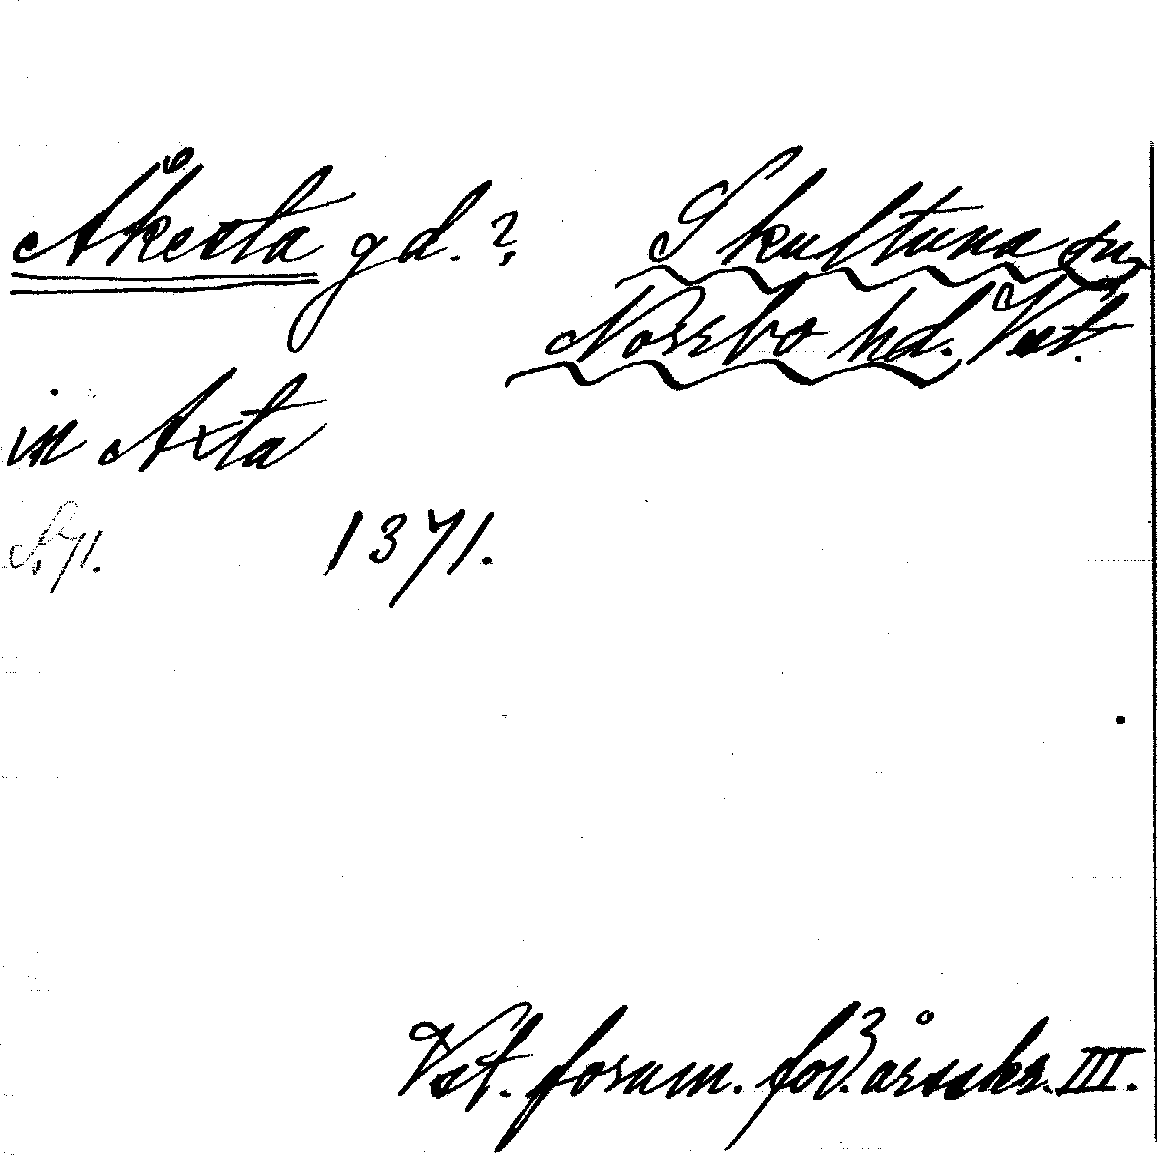 Åkesta gd.? Skultuna sn,
Norrbo hd. Vstl.
in Axta
S. 71. 1371.
Vstl. fornm. för. årsskr. III.